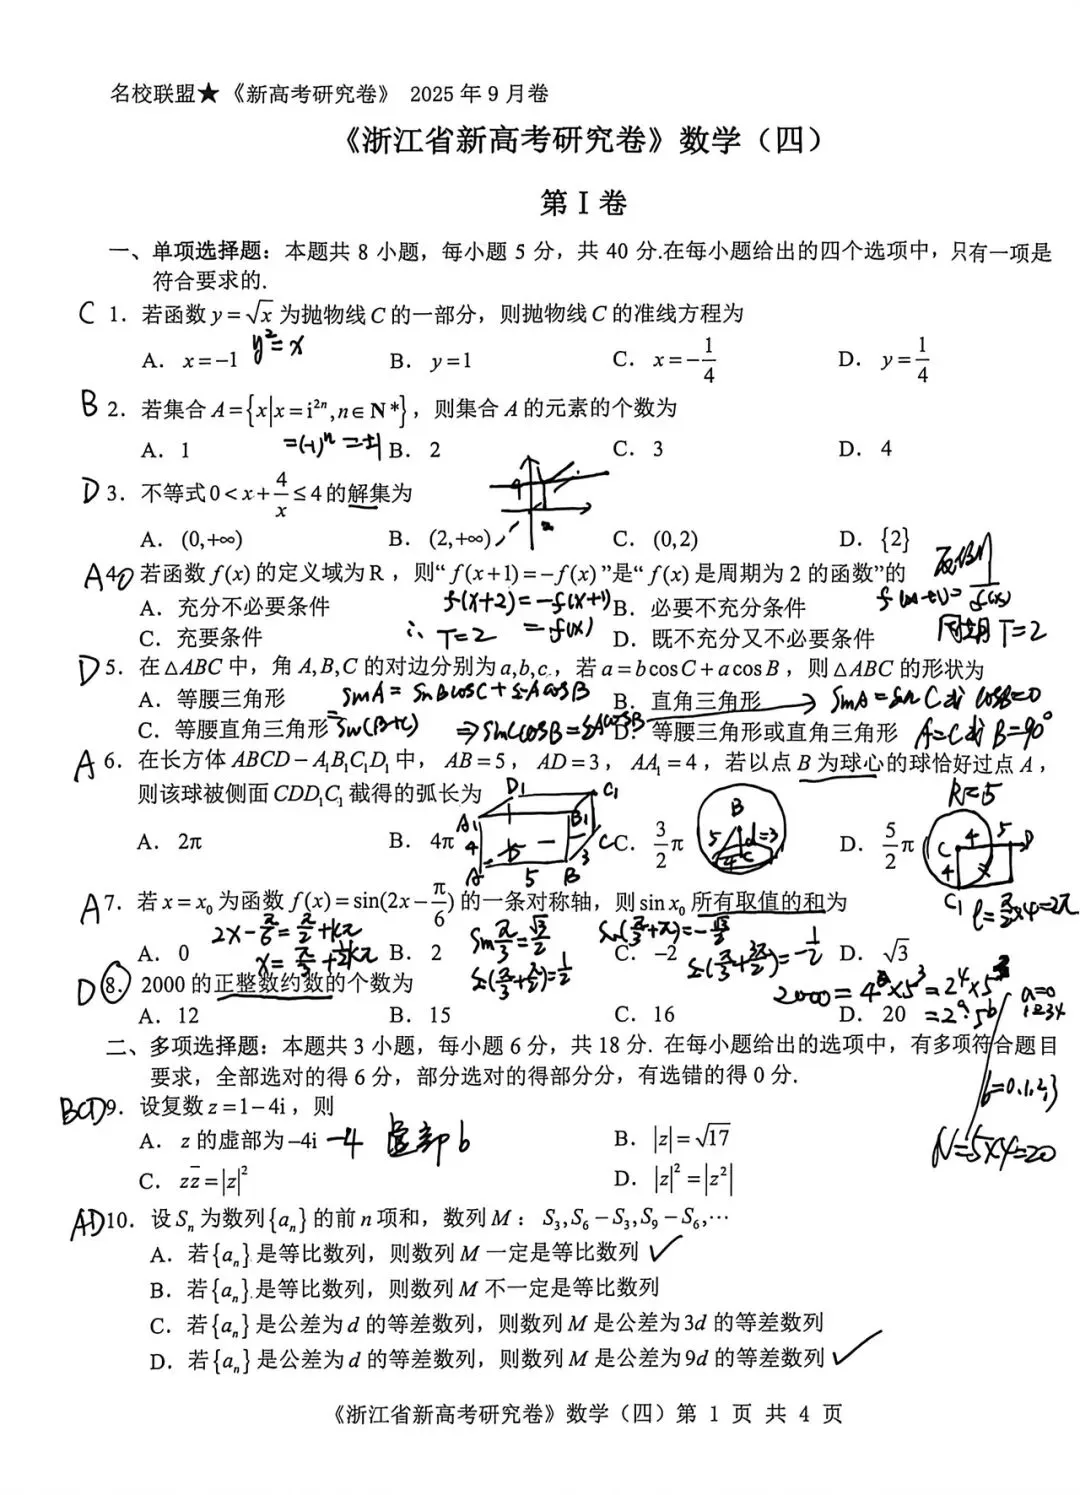 名校联盟★《新高考研究卷》 2025年9月卷
《浙江省新高考研究卷》数学（四）
第Ⅰ卷
一、单项选择题：本题共 8 小题，每小题 5 分，共 40 分.在每小题给出的四个选项中，只有一项是
符合要求的.
C 1．若函数 y=√x 为抛物线 C 的一部分，则抛物线 C 的准线方程为
y²=x
A．x=−1 B．y=1 C．x=−1/4 D．y=1/4
B 2．若集合 A={x|x=i²ⁿ,n∈N*}，则集合 A 的元素的个数为
=(-1)ⁿ=±1
A．1 B．2 C．3 D．4
D 3．不等式 0<x+4/x≤4 的解集为
A．(0,+∞) B．(2,+∞) C．(0,2) D．{2}
A 4．若函数 f(x) 的定义域为 R，则“f(x+1)=−f(x)”是“f(x) 是周期为 2 的函数”的
A．充分不必要条件 f(x+2)=-f(x+1) B．必要不充分条件
C．充要条件 ∴T=2 =f(x) D．既不充分又不必要条件 周期T=2
D 5．在△ABC 中，角 A,B,C 的对边分别为 a,b,c，若 a=bcosC+acosB，则△ABC 的形状为
A．等腰三角形 sinA=sinBcosC+sinAcosB B．直角三角形 → sinA=sinC或cosB=0
C．等腰直角三角形 =sin(B+C) ⇒sinCcosB=sinAcosB D．等腰三角形或直角三角形 A=C或B=90°
A 6．在长方体 ABCD−A₁B₁C₁D₁ 中，AB=5，AD=3，AA₁=4，若以点 B 为球心的球恰好过点 A，
则该球被侧面 CDD₁C₁ 截得的弧长为
R=5
D₁ C₁ A₁ B₁ 4 D C A 5 B 3
B 5 d=3 4 C
C 4 5 D 4 C₁
A．2π B．4π C．3/2π D．5/2π
l=π/2×4=2π
A 7．若 x=x₀ 为函数 f(x)=sin(2x−π/6) 的一条对称轴，则 sin x₀ 所有取值的和为
2x-π/6=π/2+kπ sinπ/3=√3/2 sin(π/3+π)=-√3/2
A．0 B．2 C．−2 D．√3
x=π/3+1/2kπ sin(π/3+π/2)=1/2 sin(π/3+3π/2)=-1/2
D 8．2000 的正整数约数的个数为
2000=4²×5³=2⁴×5³
A．12 B．15 C．16 D．20 =2ᵃ·5ᵇ
a=0 1 2 3 4
b=0,1,2,3
N=5×4=20
二、多项选择题：本题共 3 小题，每小题 6 分，共 18 分. 在每小题给出的选项中，有多项符合题目
要求，全部选对的得 6 分，部分选对的得部分分，有选错的得 0 分.
BCD 9．设复数 z=1−4i，则
A．z 的虚部为 −4i -4 虚部b B．|z|=√17
C．zz̄=|z|² D．|z|²=|z²|
AD 10．设 Sₙ 为数列{aₙ}的前 n 项和，数列 M：S₃,S₆−S₃,S₉−S₆,⋯
A．若{aₙ}是等比数列，则数列 M 一定是等比数列 ✓
B．若{aₙ}是等比数列，则数列 M 不一定是等比数列
C．若{aₙ}是公差为 d 的等差数列，则数列 M 是公差为 3d 的等差数列
D．若{aₙ}是公差为 d 的等差数列，则数列 M 是公差为 9d 的等差数列 ✓
《浙江省新高考研究卷》数学（四）第 1 页 共 4 页